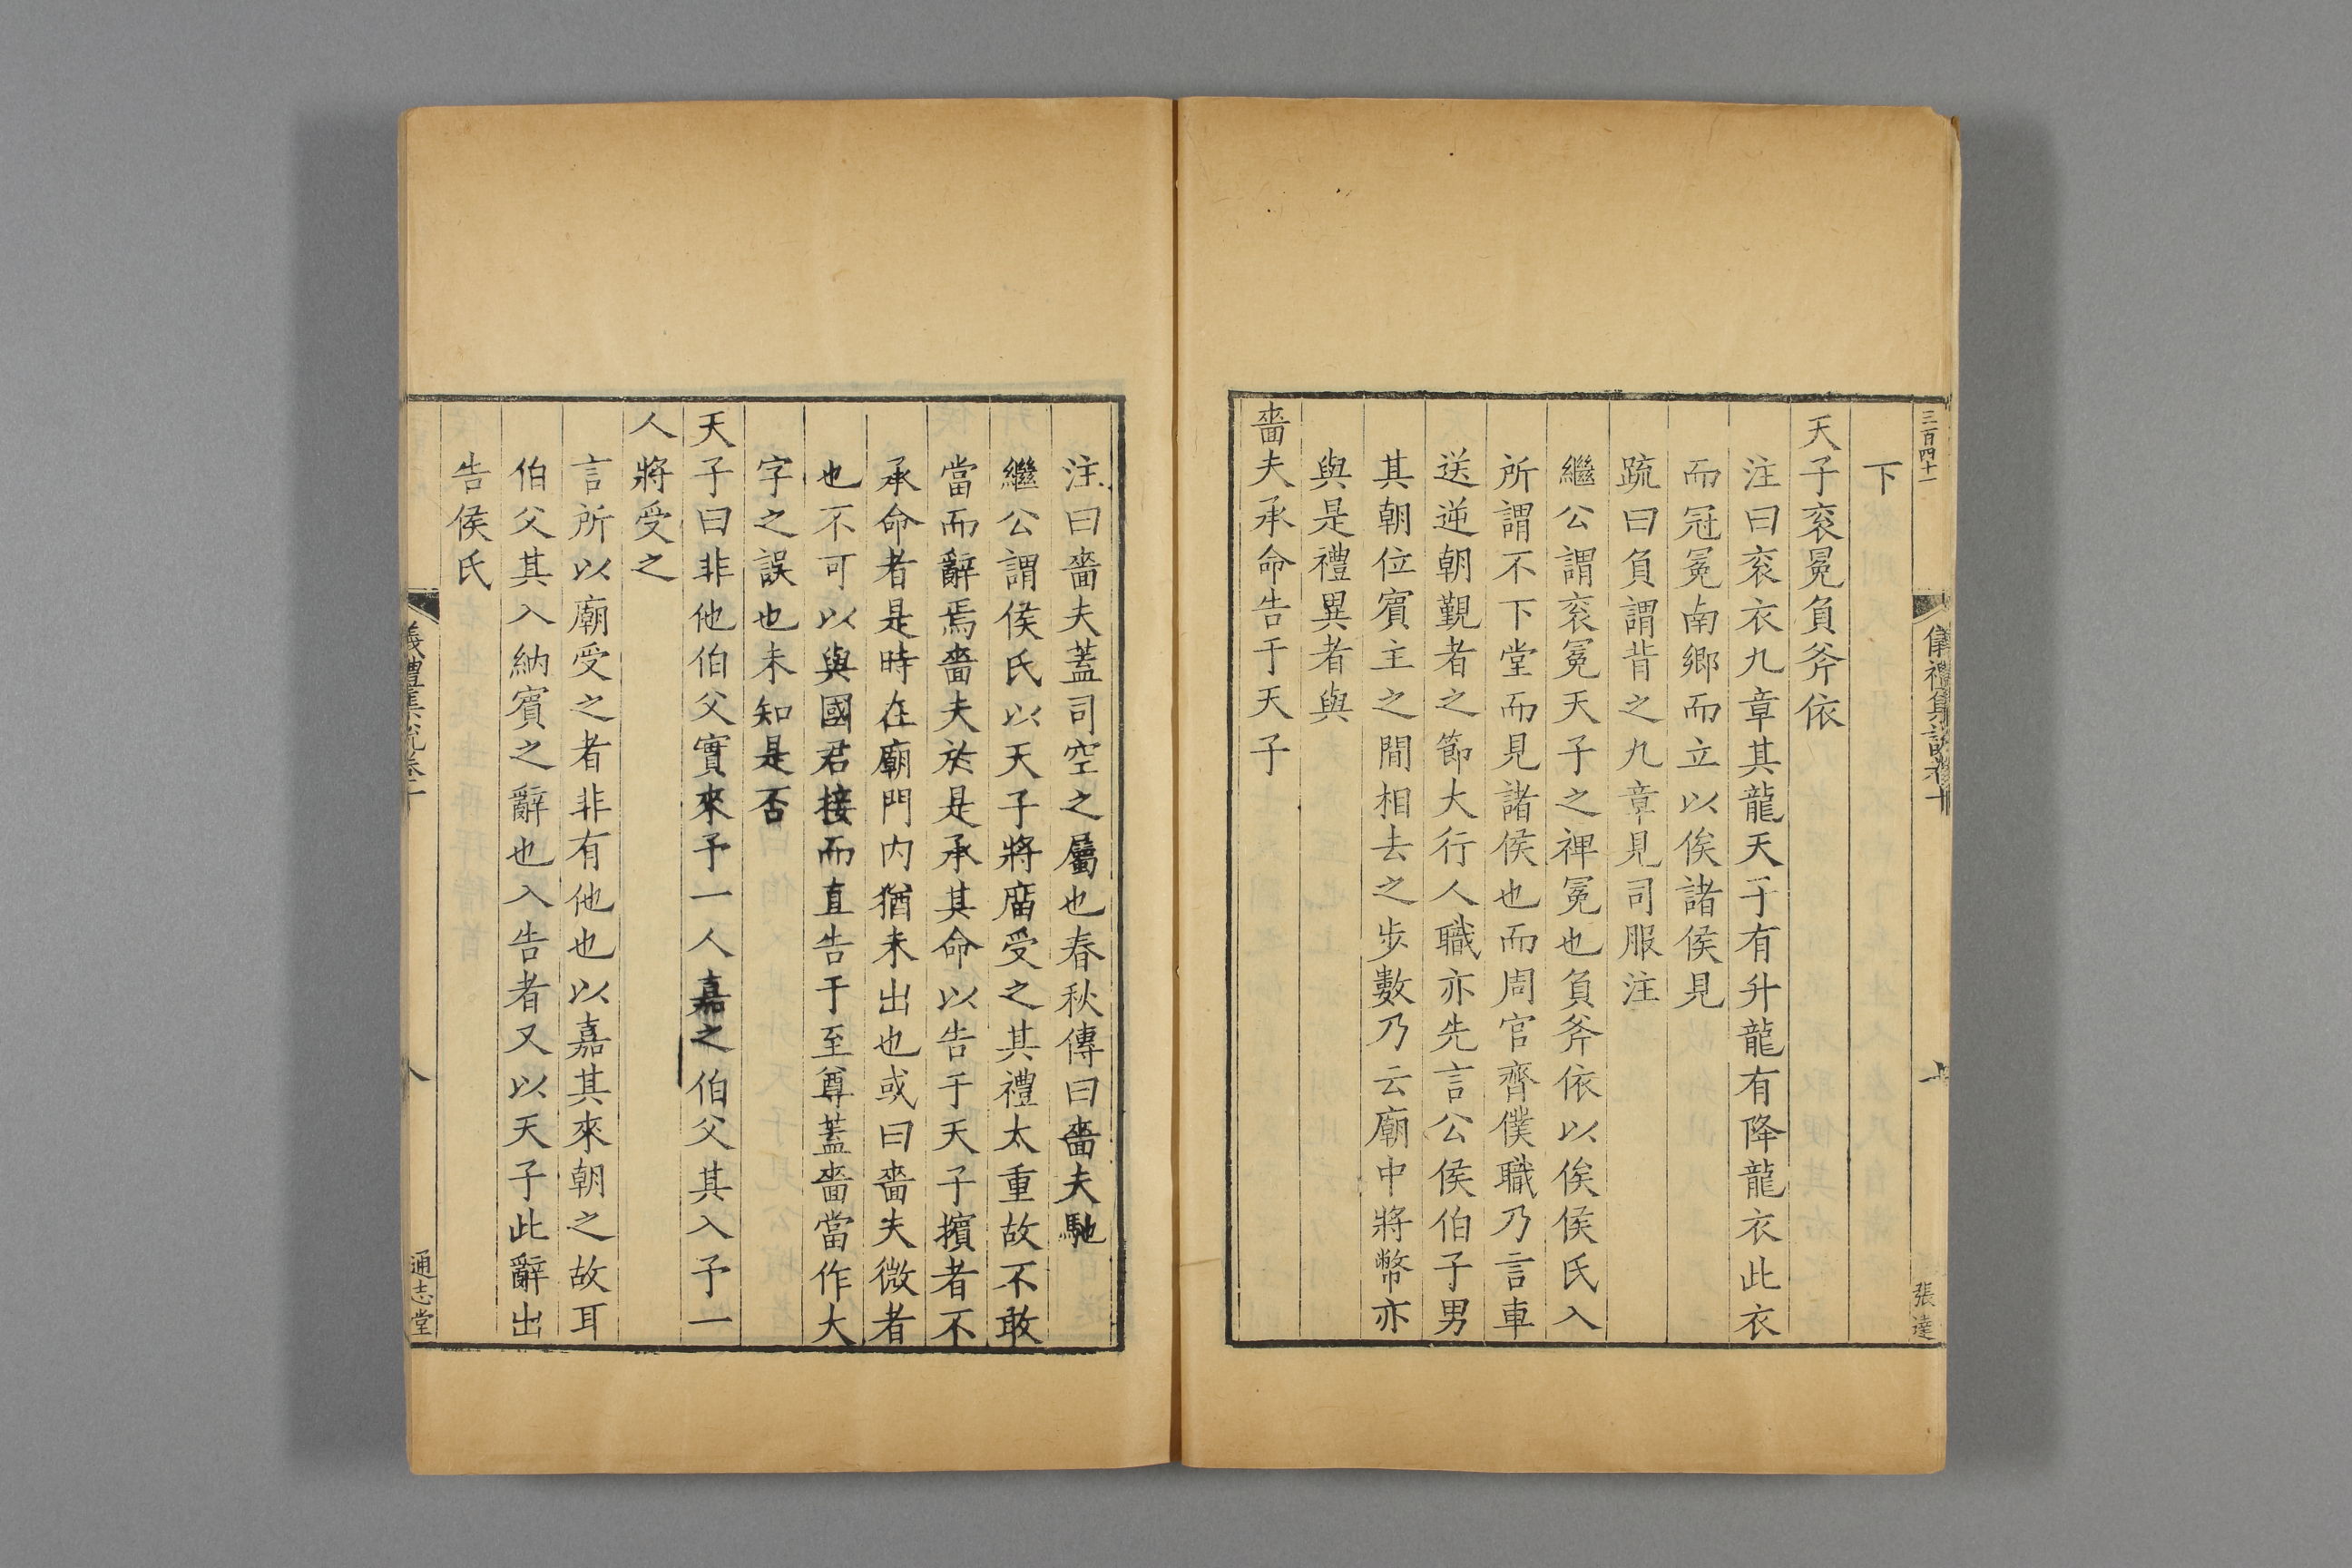 三百四十一
儀禮集說卷十
張達
下
天子衮冕負斧依
注曰衮衣九章其龍天子有升龍有降龍衣此衣
而冠冕南鄉而立以俟諸侯見
疏曰負謂背之九章見司服注
繼公謂衮冕天子之裨冕也負斧依以俟侯氏入
所謂不下堂而見諸侯也而周官齊僕職乃言車
送逆朝覲者之節大行人職亦先言公侯伯子男
其朝位賓主之間相去之步數乃云廟中將幣亦
與是禮異者與
嗇夫承命告于天子
注曰嗇夫蓋司空之屬也春秋傳曰嗇夫馳
繼公謂侯氏以天子將廟受之其禮太重故不敢
當而辭焉嗇夫於是承其命以告于天子擯者不
承命者是時在廟門内猶未出也或曰嗇夫微者
也不可以與國君接而直告于至尊蓋嗇當作大
字之誤也未知是否
天子曰非他伯父實來予一人嘉之伯父其入予一
人將受之
言所以廟受之者非有他也以嘉其來朝之故耳
伯父其入納賓之辭也入告者又以天子此辭出
告侯氏
儀禮集說卷十
八
通志堂